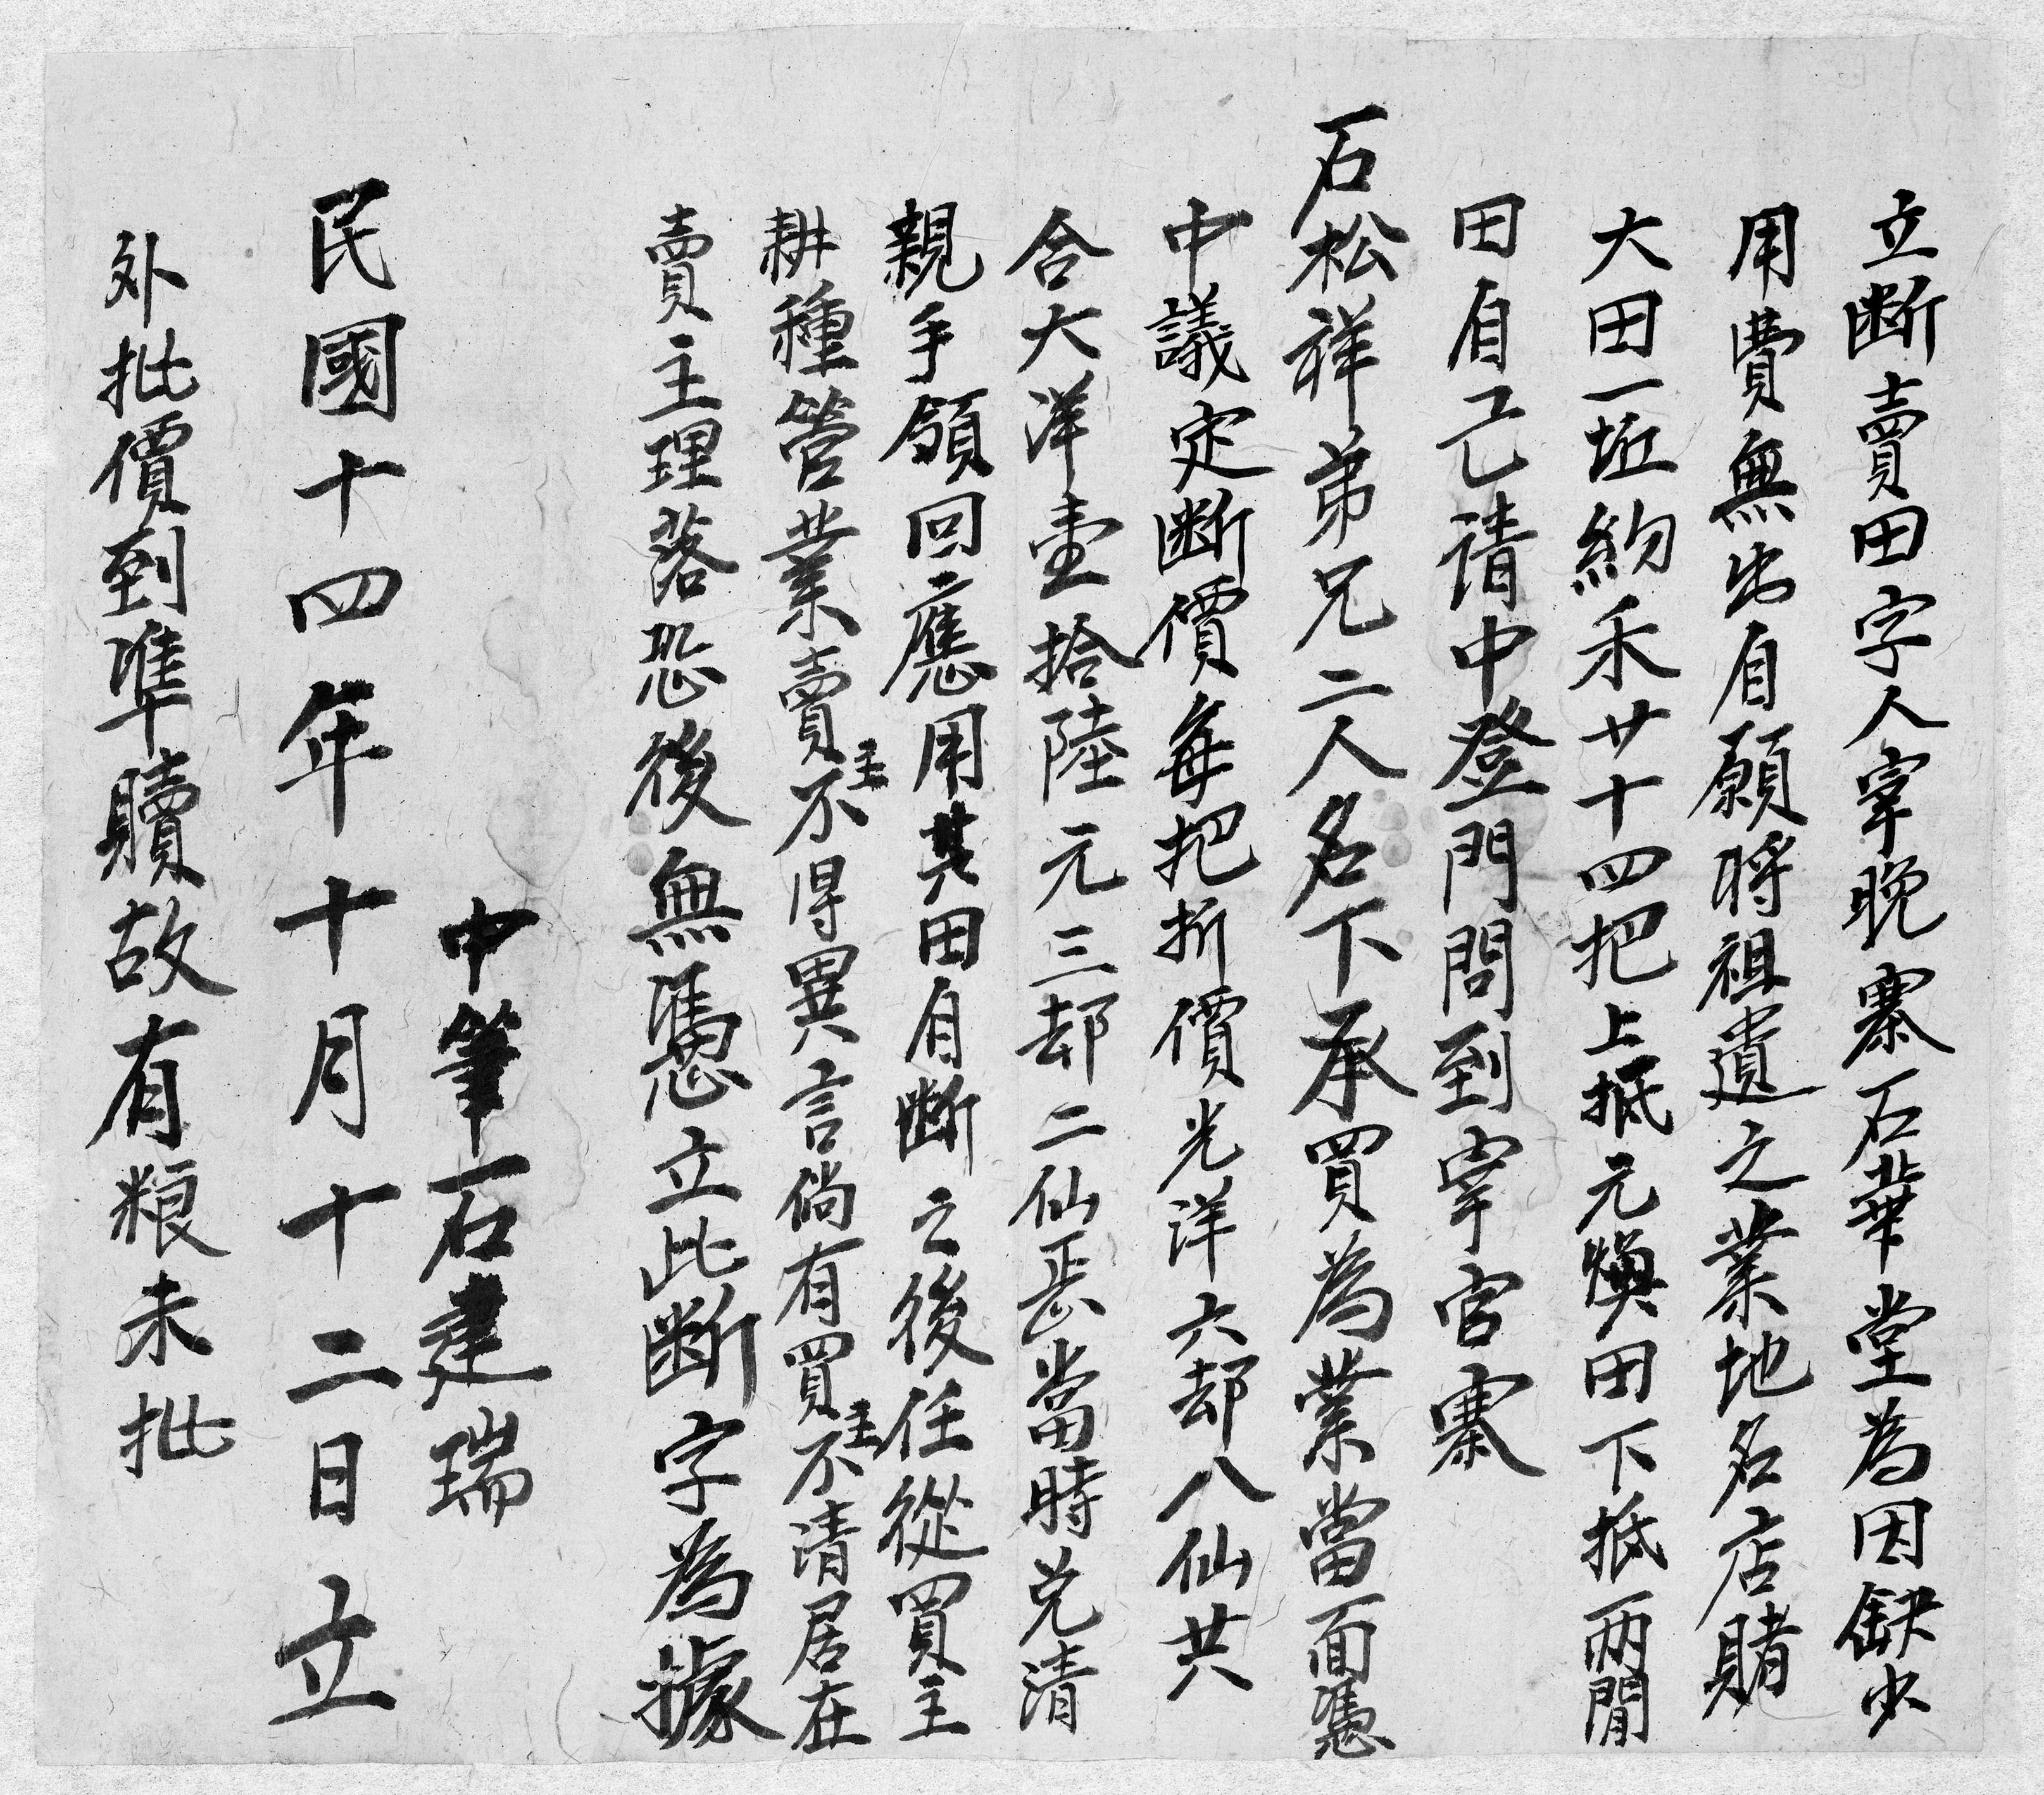 立断賣田字人宰晚寨石華堂為因缺少
用費無出自願將祖遺之業地名店賭
大田一坵約禾廿十四把上抵元煥田下抵兩閒
田自己请中登門問到宰官寨
石松祥弟兄二人名下承買為業當面憑
中議定断價每把折價光洋六却八仙共
合大洋壹拾陸元三却二仙乕當時兑清
親手領回應用其田自断之後任從買主
耕種管業賣主不得異言倘有買主不清居在
賣主理落恐後無憑立此断字為據
中筆石建瑞
民國十四年十月十二日立
外批價到準贖故有粮未批